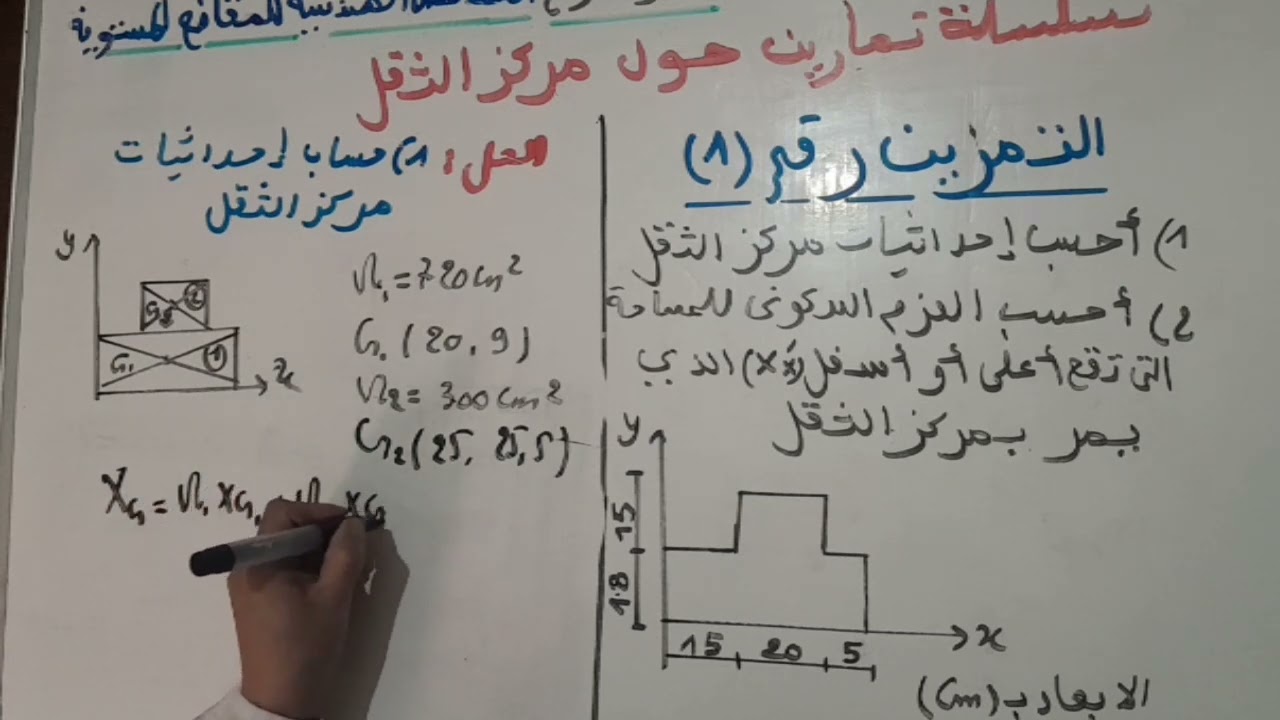 الهندسية للمقاطع المستوية
سلسلة تمارين حول مركز الثقل
التمرين رقم (1)
1) أحسب إحداثيات مركز الثقل
2) أحسب العزم السكوني للمساحة
التي تقع أعلى أو أسفل (xx́) الذي
يمر بمركز الثقل
y
15
18
x
15 20 5
الابعاد ب (cm)
الحل: 1) حساب إحداثيات
مركز الثقل
y
G2 2
G1 1
x
Ω1 = 720 cm²
G1 (20, 9)
Ω2 = 300 cm²
G2 (25, 25,5)
XG = Ω1 XG1 + Ω XG